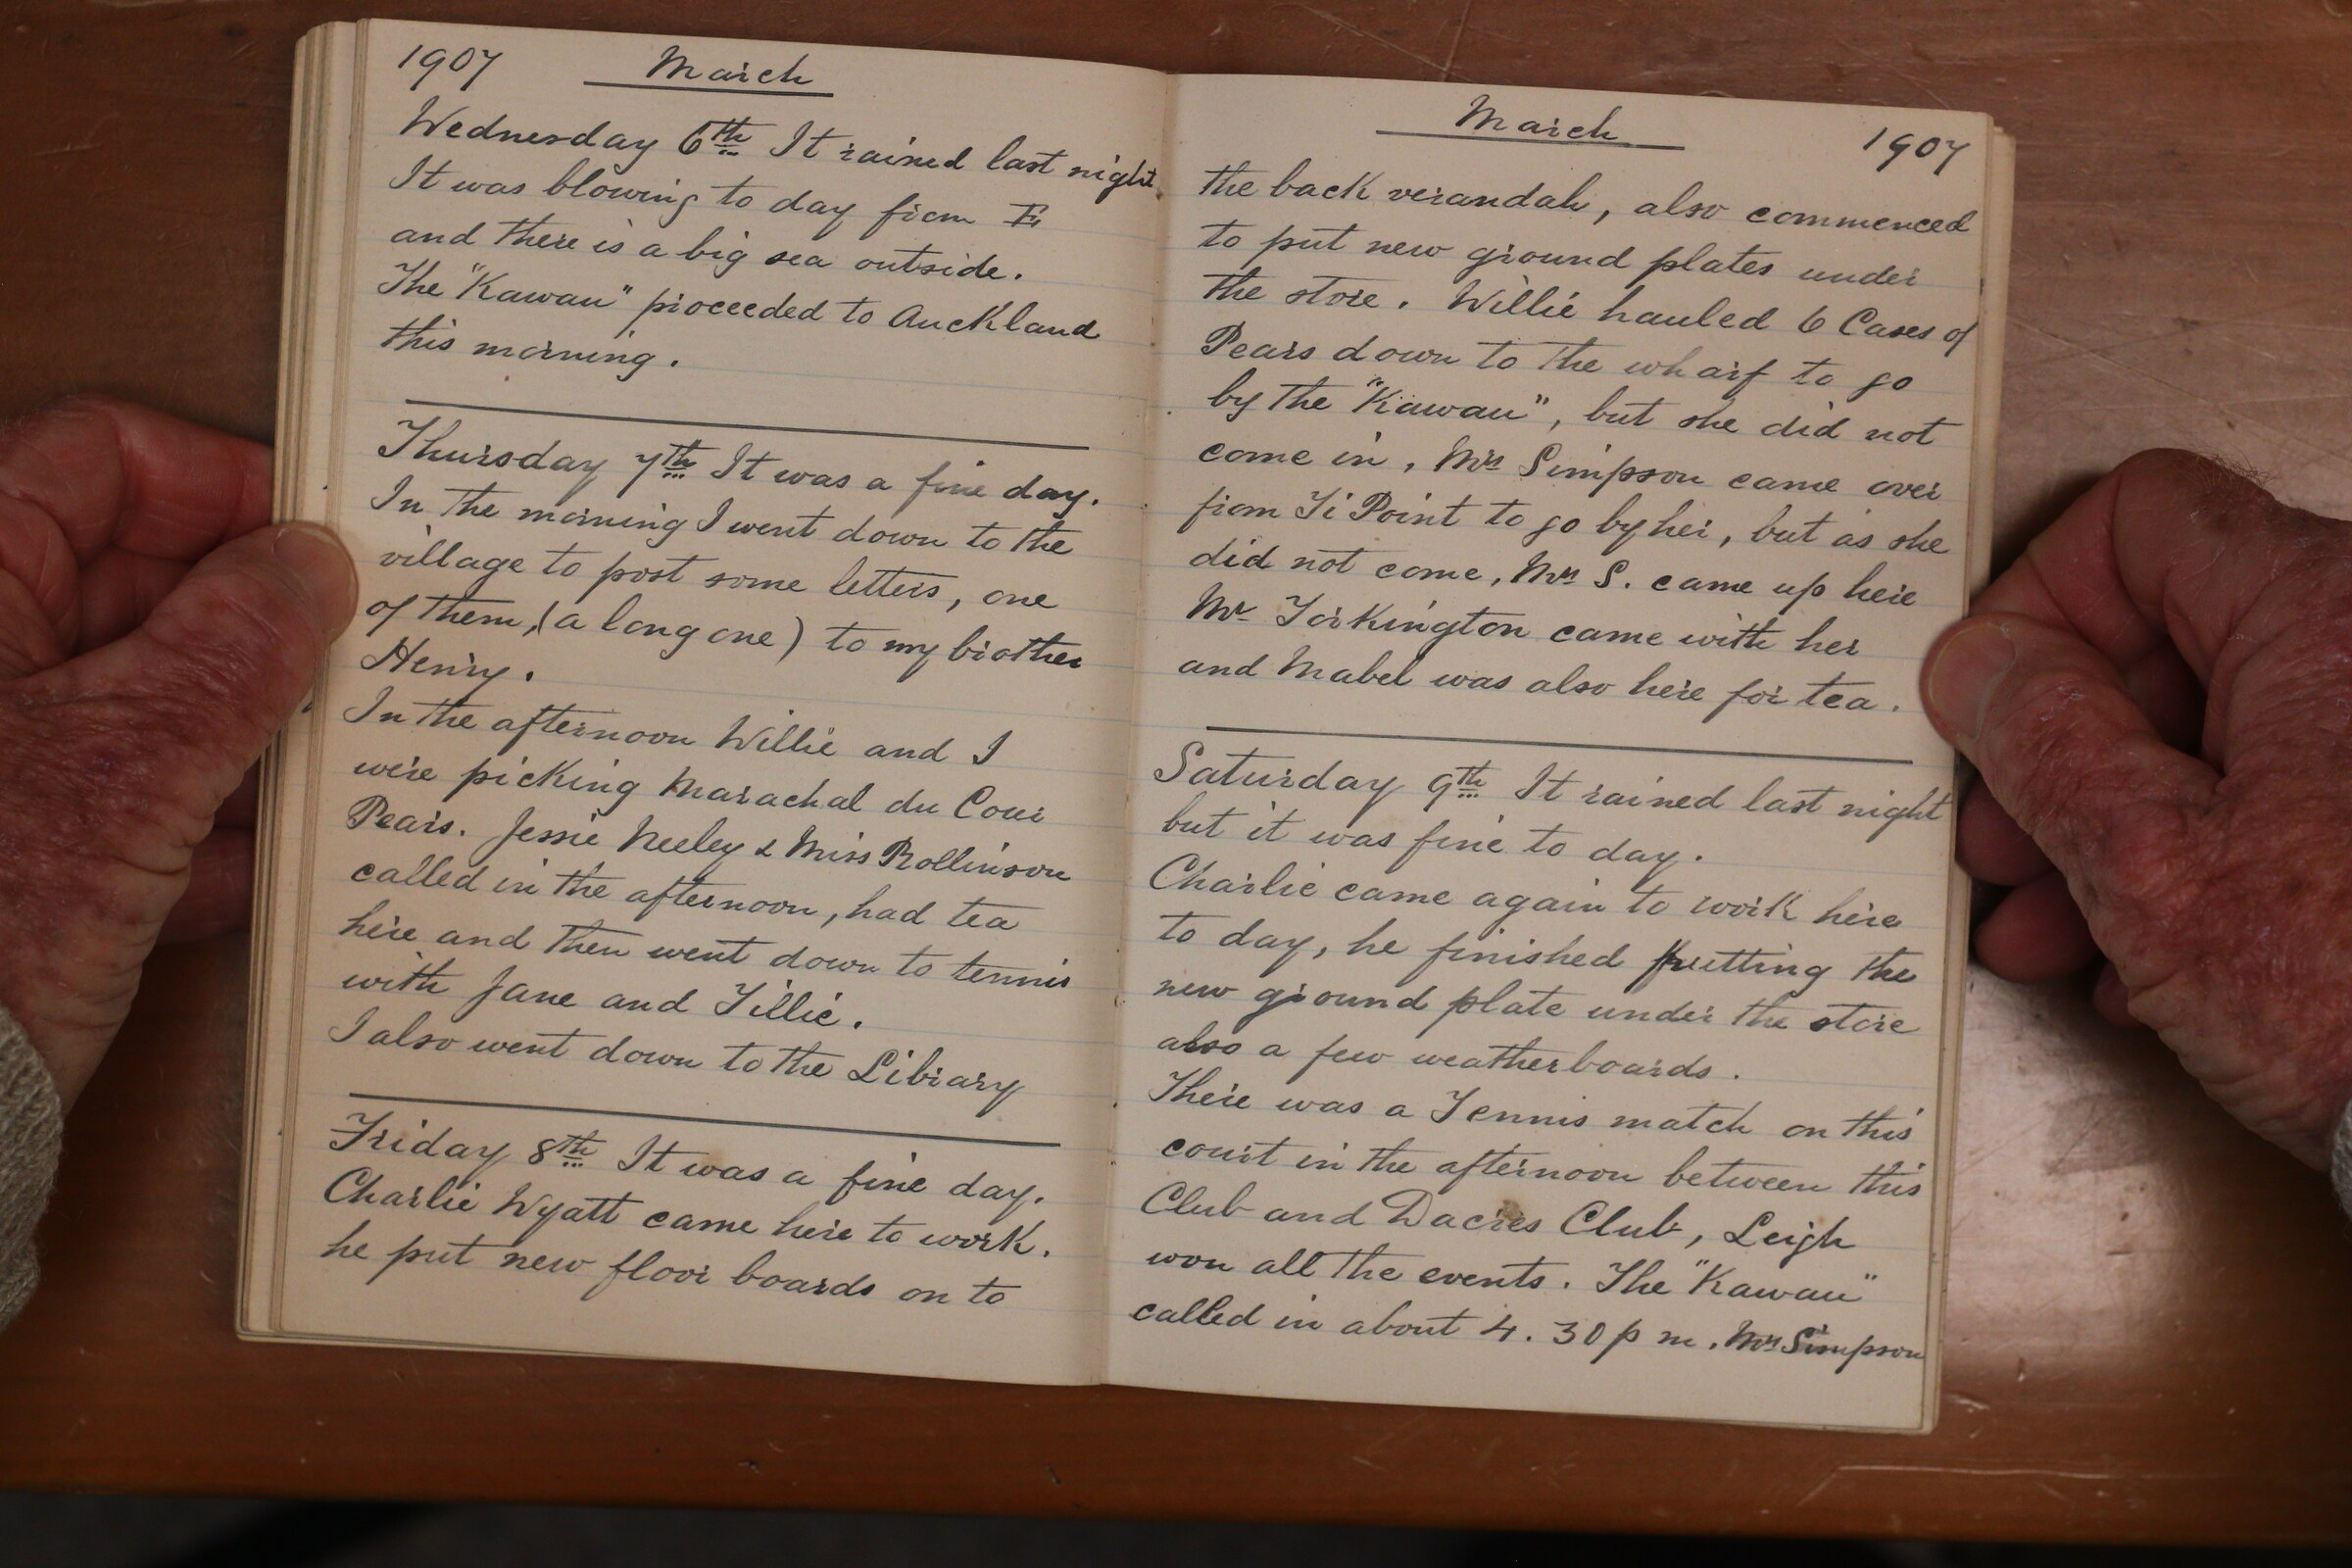 1907 March
Wednesday 6th It rained last night
It was blowing to day from E
and there is a big sea outside.
The "Kawau" proceeded to Auckland
this morning.
Thursday 7th It was a fine day.
In the morning I went down to the
village to post some letters, one
of them, (a long one) to my brother
Henry.
In the afternoon Willie and I
were picking Marachal du Cour
Pears. Jessie Neeley & Miss Rollinson
called in the afternoon, had tea
here and then went down to tennis
with Jane and Tillie.
I also went down to the Library
Friday 8th It was a fine day.
Charlie Wyatt came here to work.
he put new floor boards on to
March 1907
the back verandah, also commenced
to put new ground plates under
the store. Willie hauled 6 Cases of
Pears down to the wharf to go
by the "Kawau", but she did not
come in, Mrs Simpson came over
from Ti Point to go by her, but as she
did not come, Mrs S. came up here
Mr Torkington came with her
and Mabel was also here for tea.
Saturday 9th It rained last night
but it was fine to day.
Charlie came again to work here
to day, he finished putting the
new ground plate under the store
also a few weatherboards.
There was a Tennis match on this
court in the afternoon between this
Club and Dacres Club, Leigh
won all the events. The "Kawau"
called in about 4.30 pm. Mrs Simpson